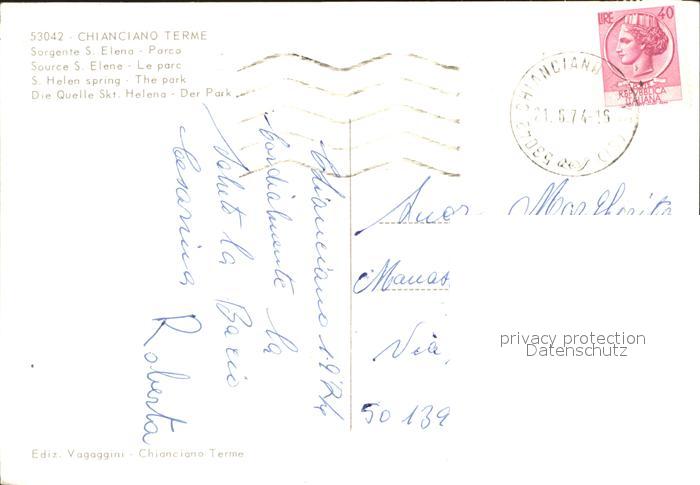 53042 - CHIANCIANO TERME
Sorgente S. Elena - Parco
Source S. Elene - Le parc
S. Helen spring - The park
Die Quelle Skt. Helena - Der Park
LIRE 40
REPUBBLICA
ITALIANA
53042 CHIANCIANO
21.6.74-16
Chianciano 1974
Cordialmente la
saluto la Bacio
Cesarina
Roberta
Margherita
Manas
Via
50139
privacy protection
Datenschutz
Ediz. Vagaggini - Chianciano Terme